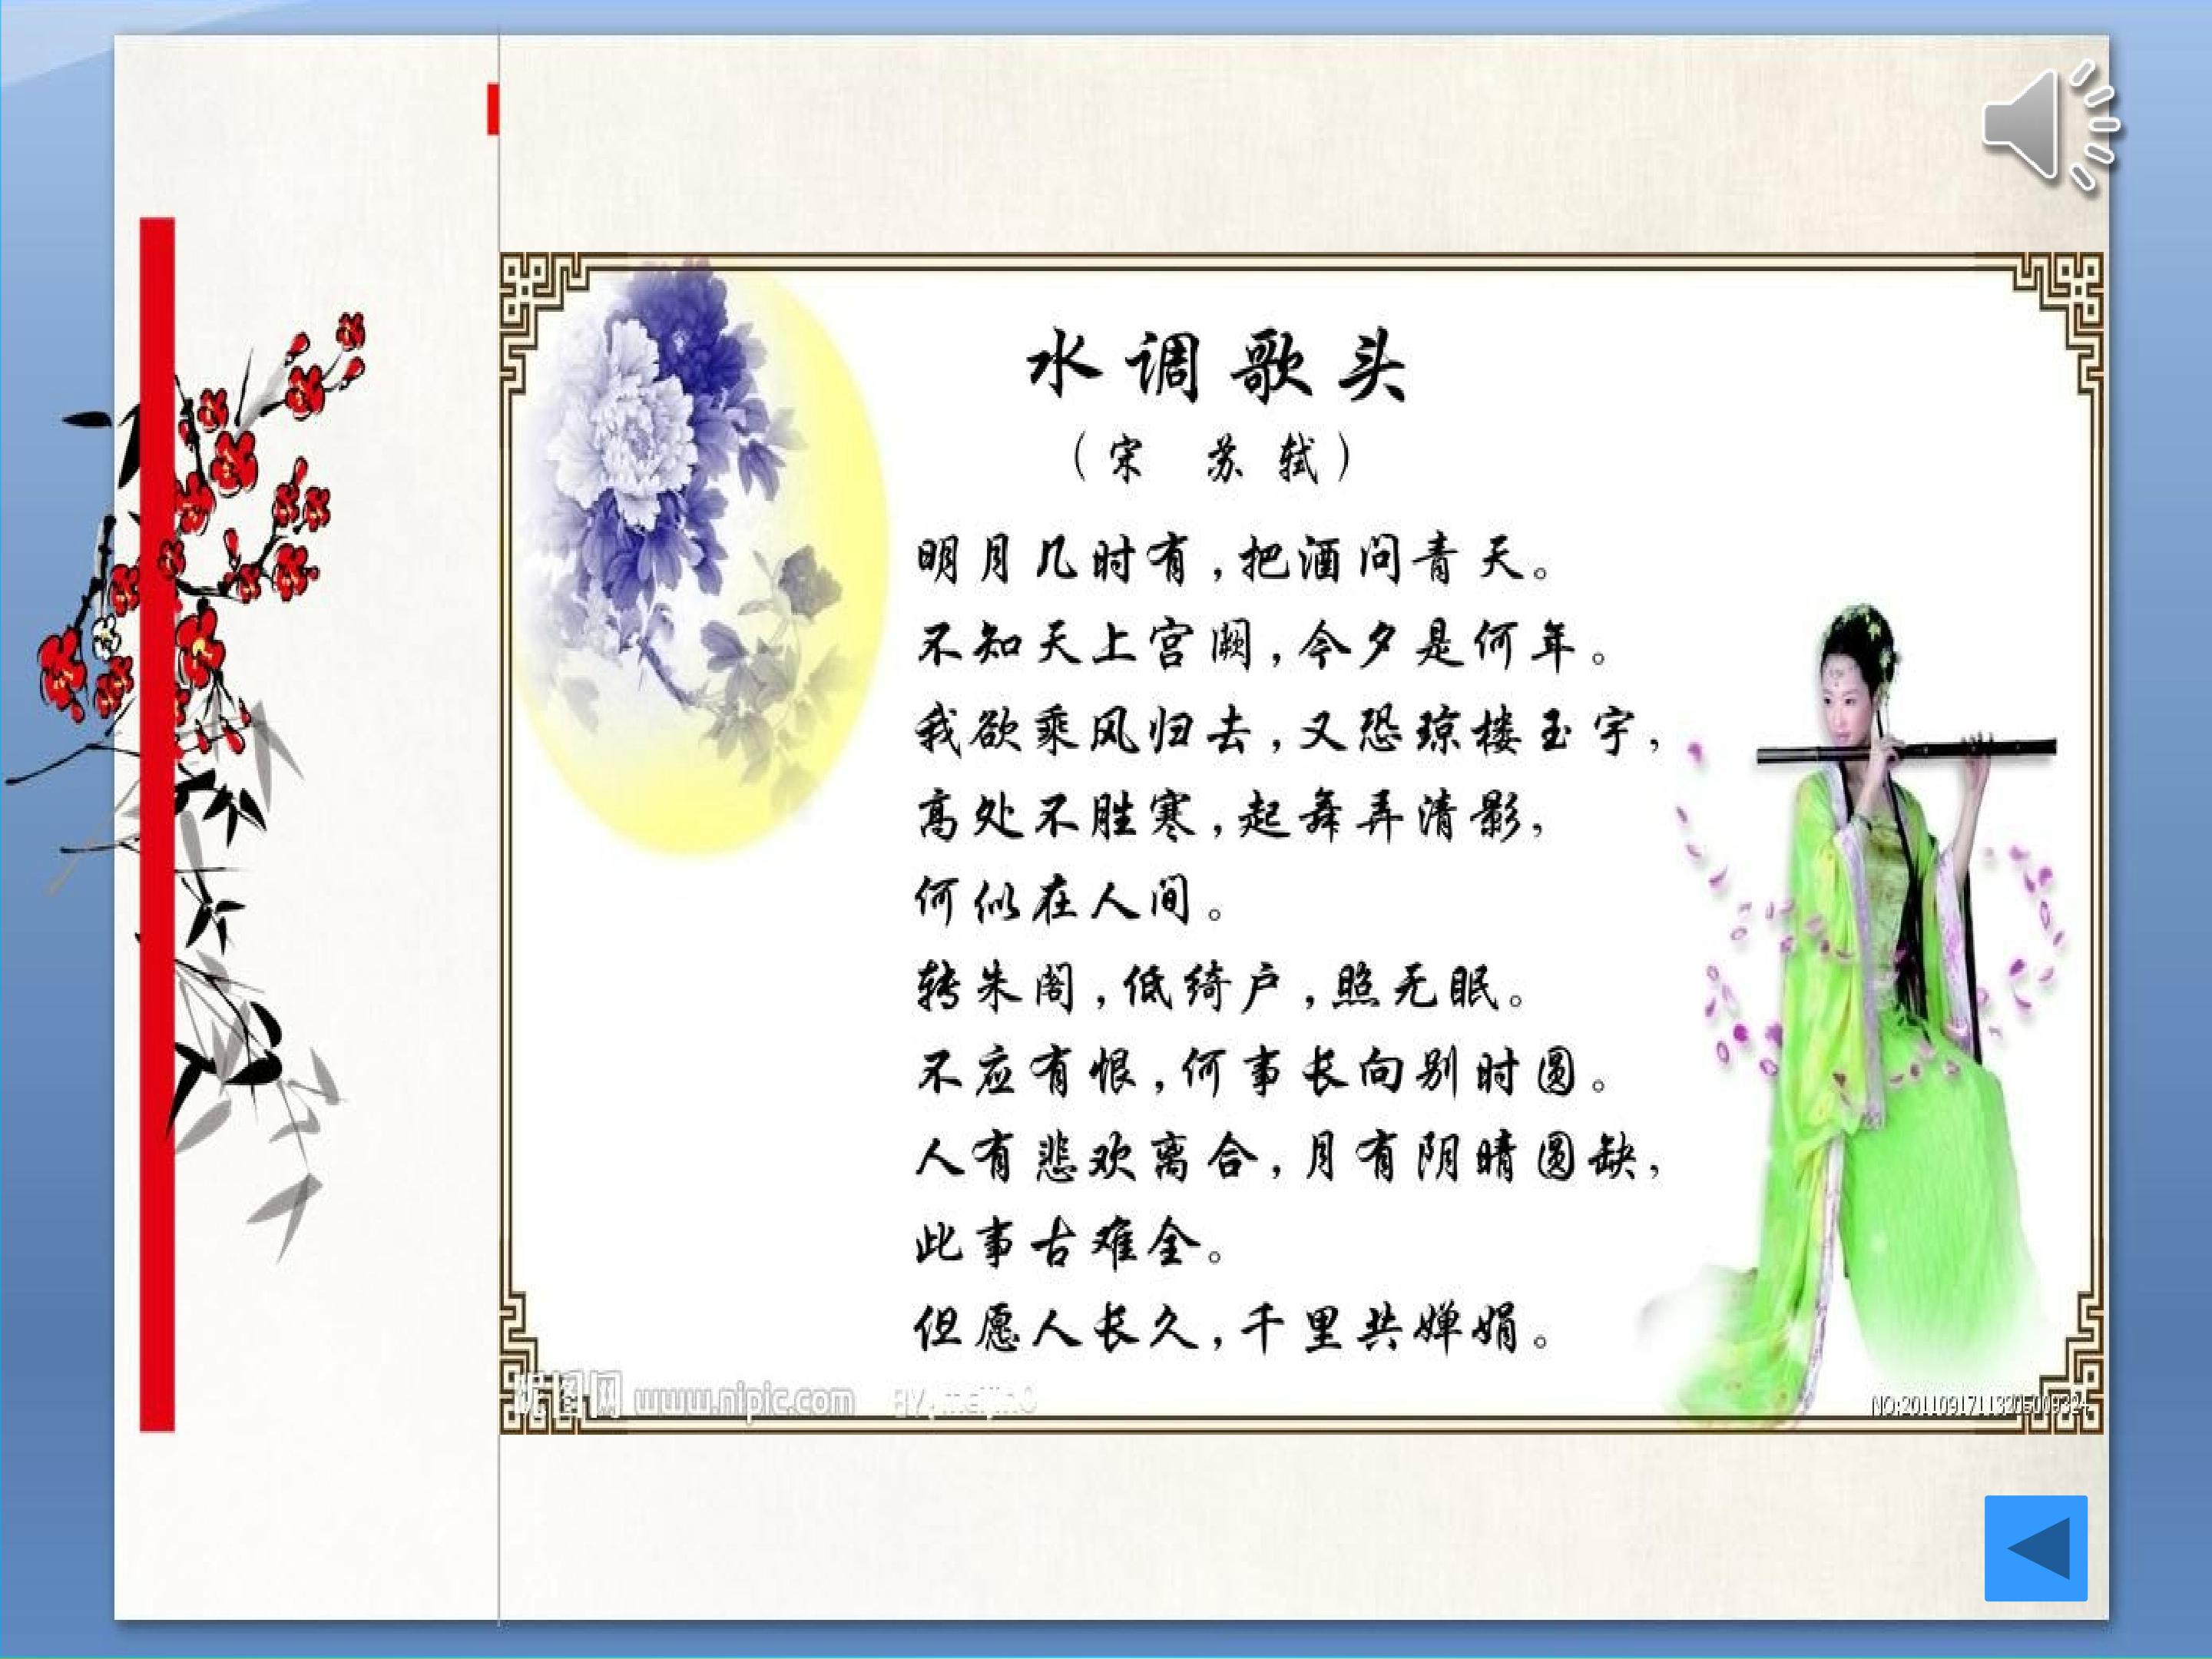 水调歌头
（宋 苏轼）
明月几时有,把酒问青天。
不知天上宫阙,今夕是何年。
我欲乘风归去,又恐琼楼玉宇,
高处不胜寒,起舞弄清影,
何似在人间。
转朱阁,低绮户,照无眠。
不应有恨,何事长向别时圆。
人有悲欢离合,月有阴晴圆缺,
此事古难全。
但愿人长久,千里共婵娟。
昵图网 www.nipic.com